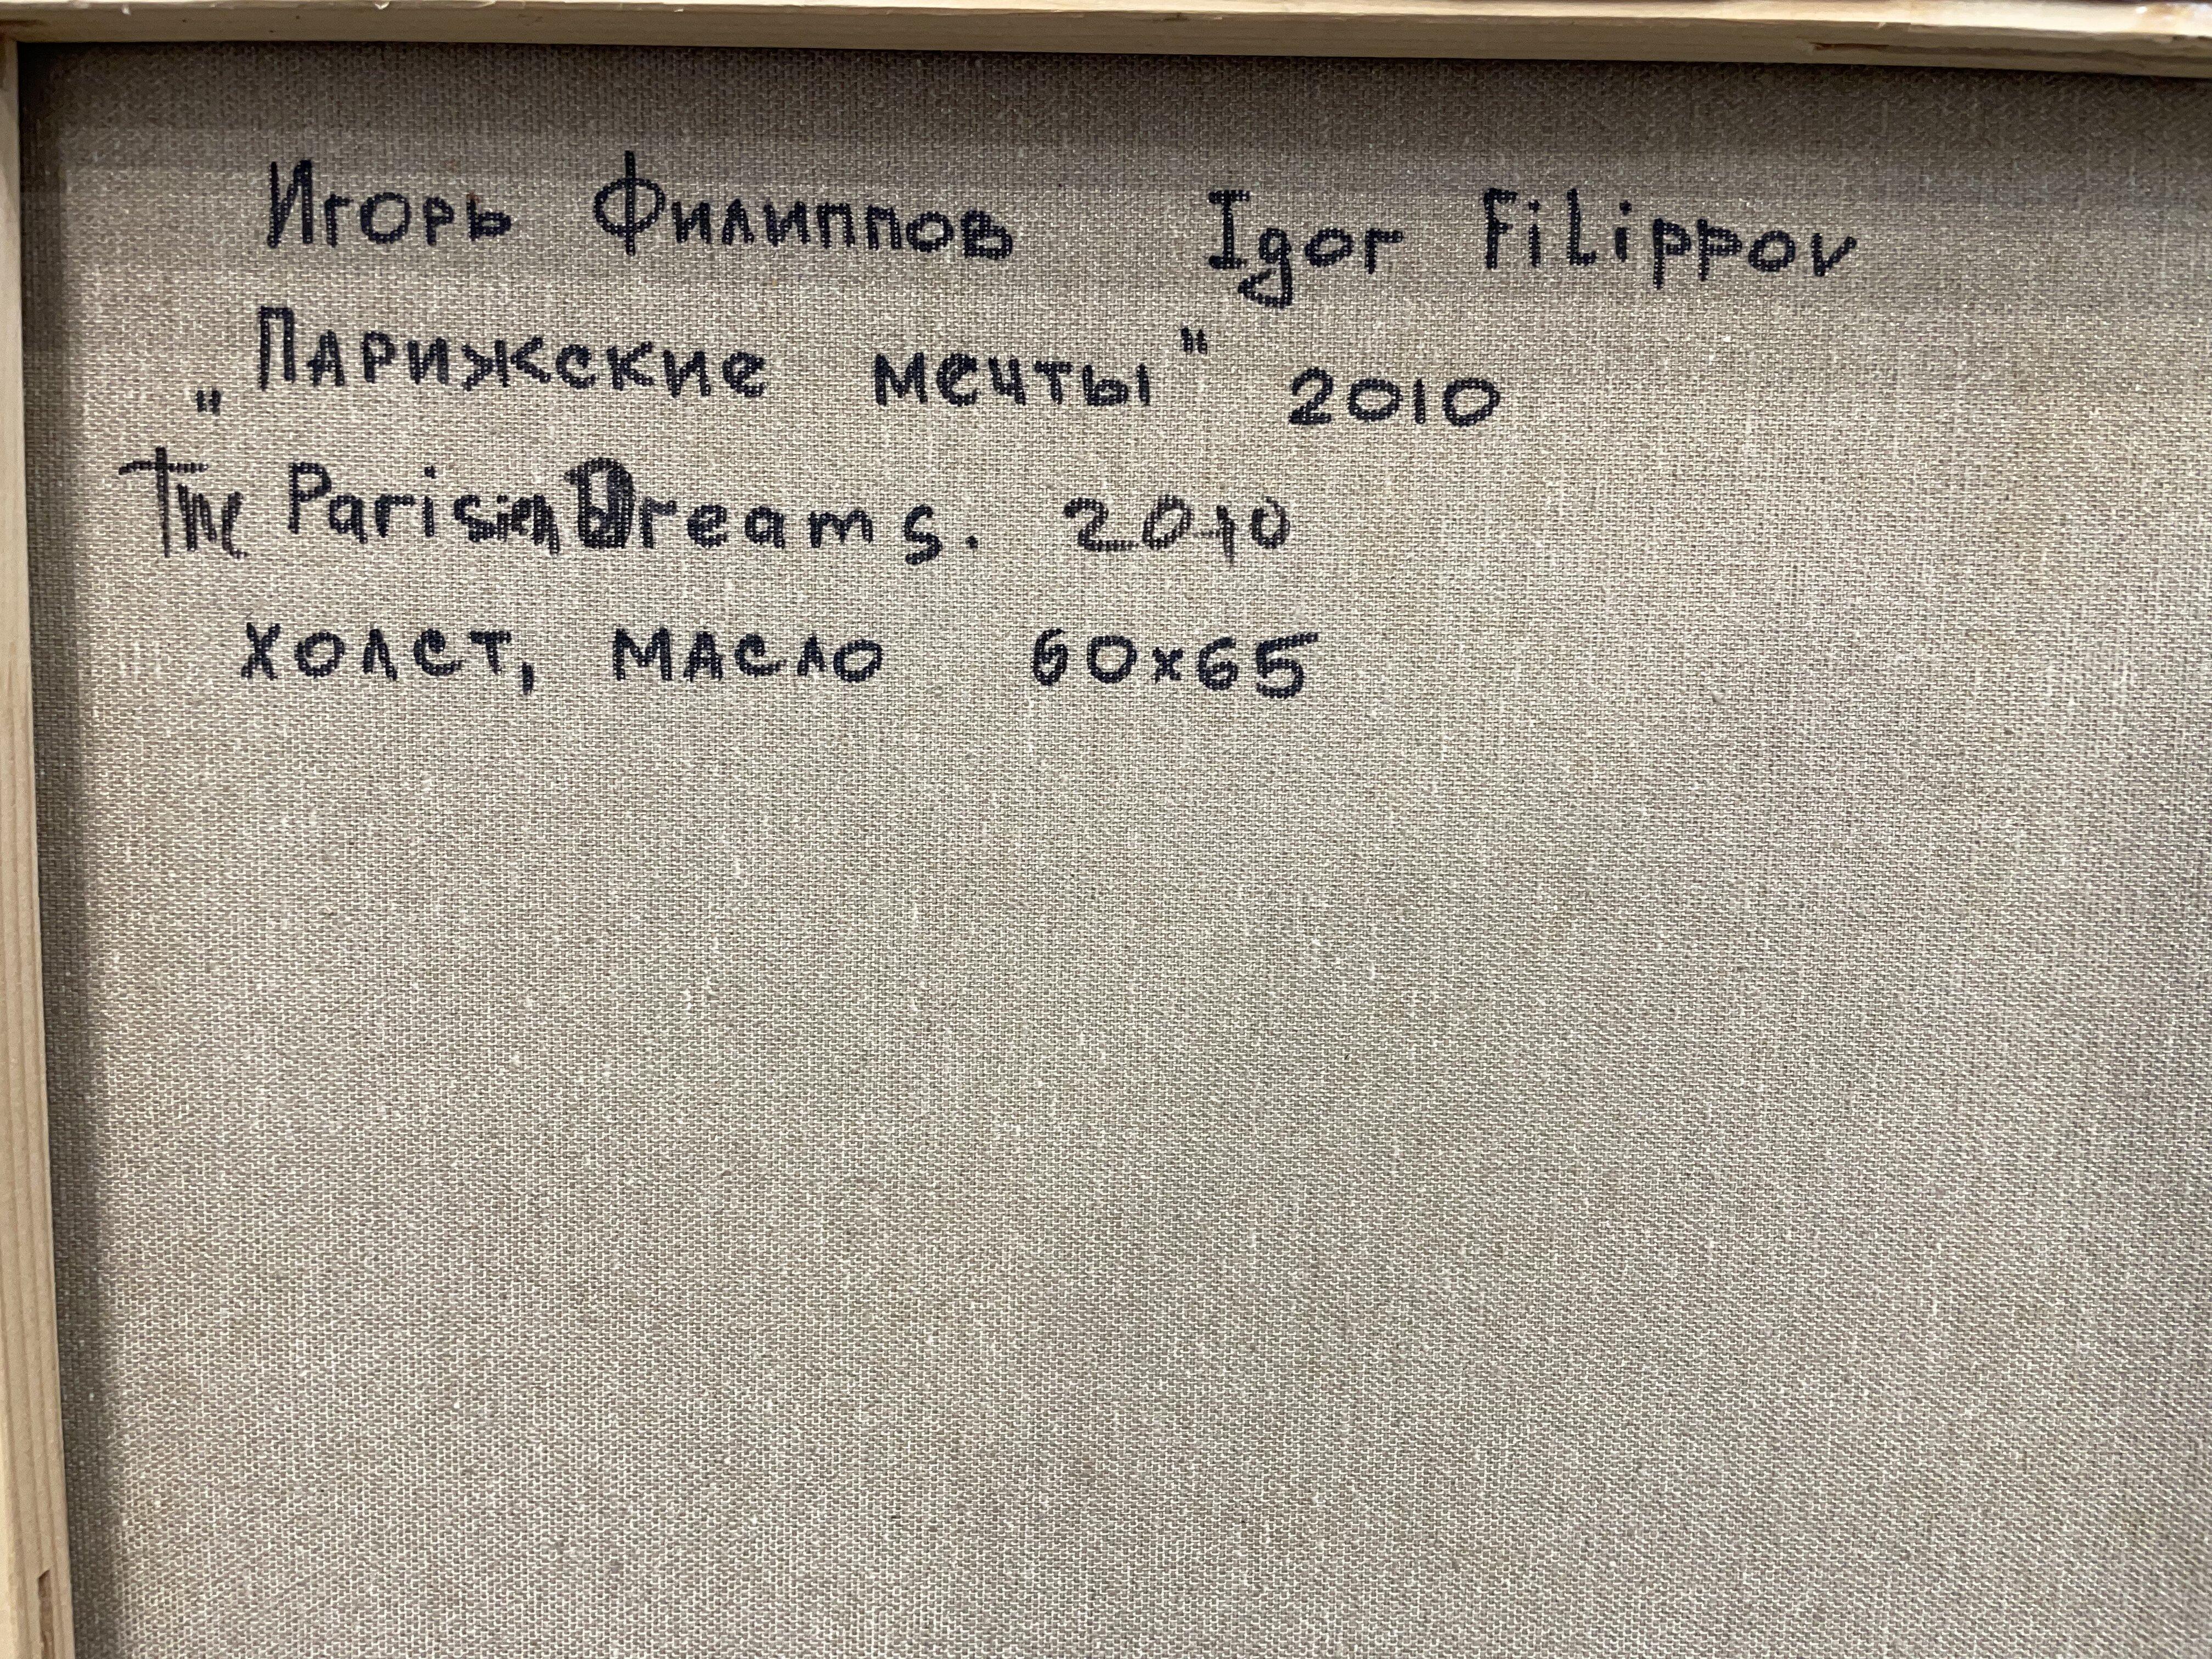 Игорь Филиппов Igor FiLippov
„Парижские мечты" 2010
The Parisien Dreams. 2010
холст, масло 60x65